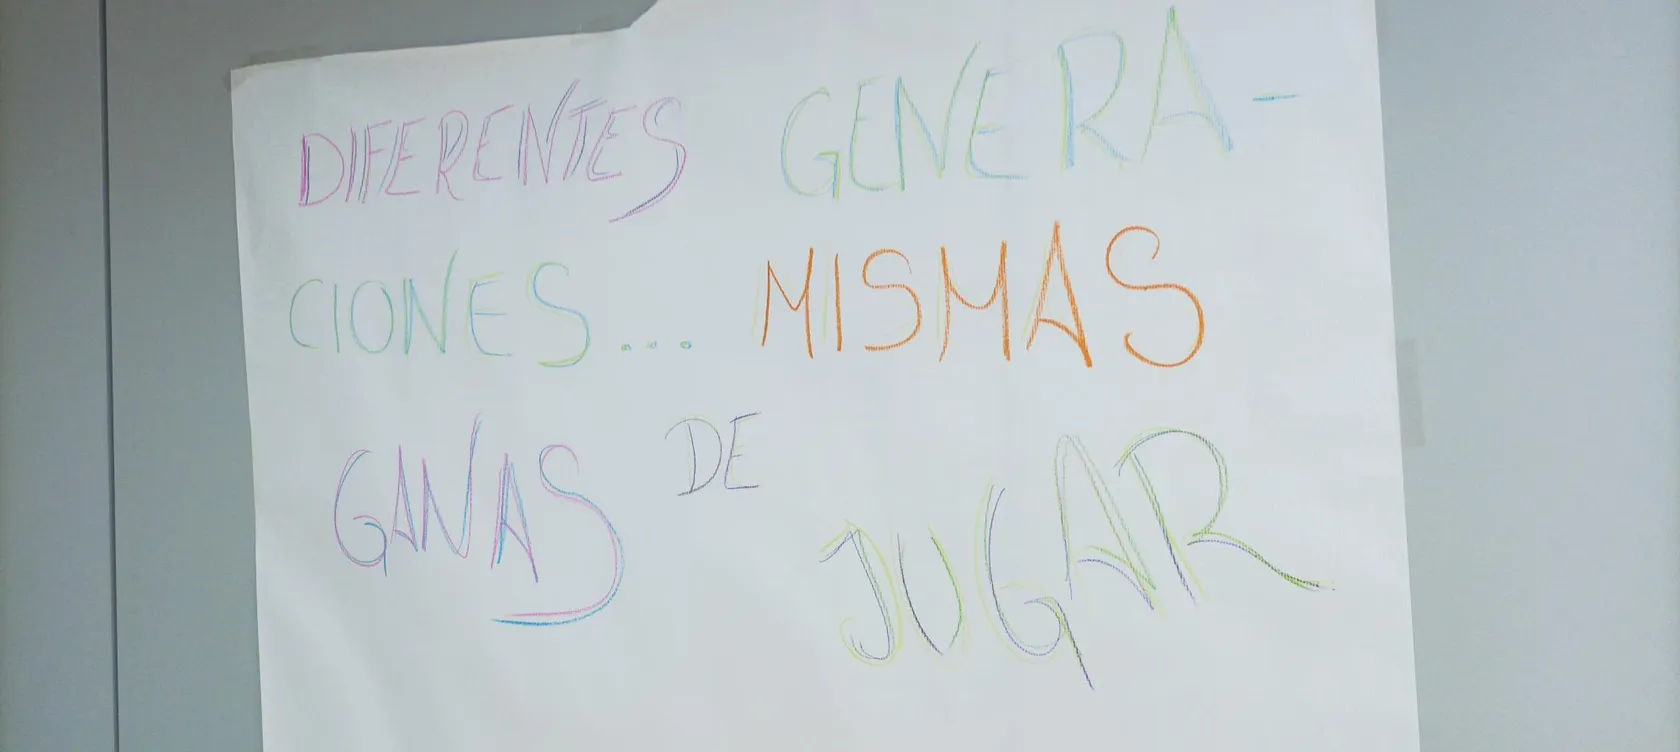 DIFERENTES GENERA-
CIONES... MISMAS
GANAS DE
JUGAR